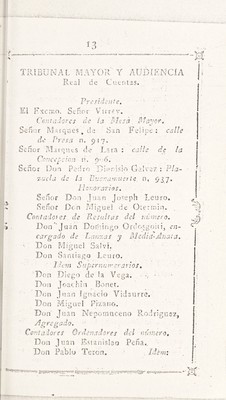 13
TRIBUNAL MAYOR Y AUDIENCIA
Real de Cuentas.
Presidente.
El Excmo. Señor Virrey.
Contadores de la Mesa Mayor.
Señor Marques de San Felipe: calle
de n. 917.
Señor Marques de Lara: calle de la
Concepcion n.
Señor Don Pedro Dionisio Galvez: Pla-
zuela de la Buenamuerte n. 937.
Honorarios.
Señor Don Juan Joseph Leuro.
Señor Don Miguel de Otermin.
Contadores de Resultas del número.
Don Juan Domingo Ordozgoiti, en-
cargado de Lanzas y Media-Anata.
Don Miguel Salvi.
Don Santiago Leuro.
Idem Supernumerarios.
Don Diego de la Vega.
Don Joachin Bonet.
Don Juan Ignacio Vidaurre.
Don Miguel Pizano.
Don Juan Nepomuceno Rodriguez,
Agregado.
Contadores Ordenadores del número.
Don Juan Estanislao Peña.
Don Pablo Teron. Idem